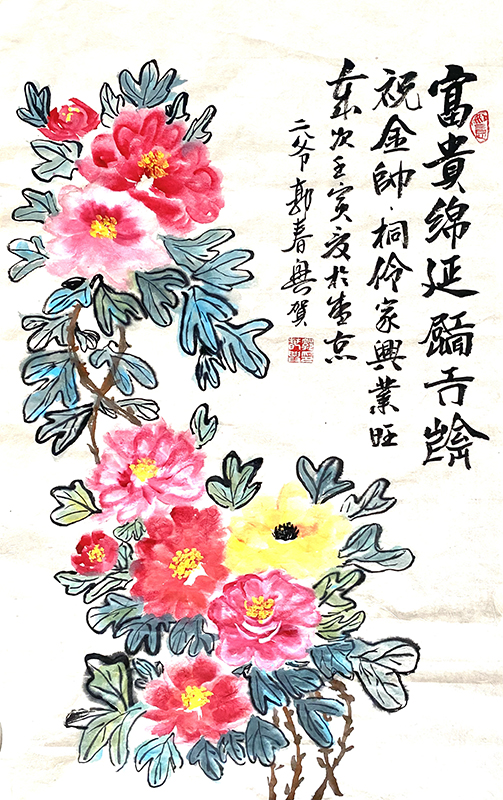 富貴綿延
祝金帥·桐伶家興業旺
歲次壬寅夏於京
二爷郭春興賀